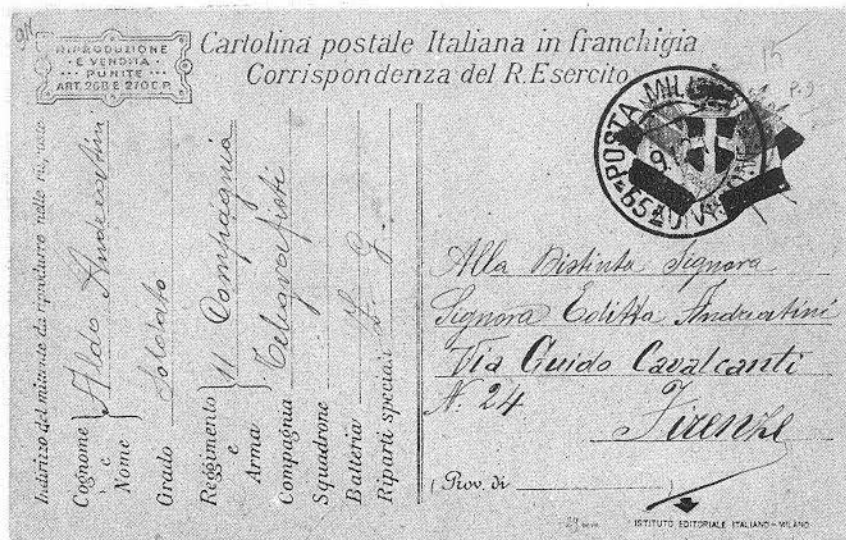 RIPRODUZIONE
E VENDITA
PUNITE
ART. 268 E 270 C.P.
Cartolina postale Italiana in franchigia
Corrispondenza del R. Esercito
POSTA MILITARE
65ª DIVISIONE
Indirizzo del mittente da riprodurre nelle risposte
Cognome e Nome } Aldo Andreatini
Grado Soldato
Reggimento e Arma } 11 Compagnia
Compagnia Telegrafisti
Squadrone
Batteria Z. G.
Riparti speciali
Alla Distinta Signora
Signora Editta Andreatini
Via Guido Cavalcanti
N. 24
Firenze
(Prov. di
ISTITUTO EDITORIALE ITALIANO - MILANO